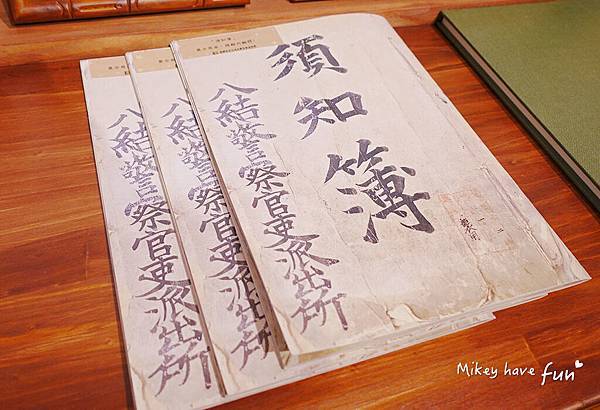 須知簿
八結警察官吏派出所
八結警察官吏派出所
八結警察官吏派出所
Mikey have fun